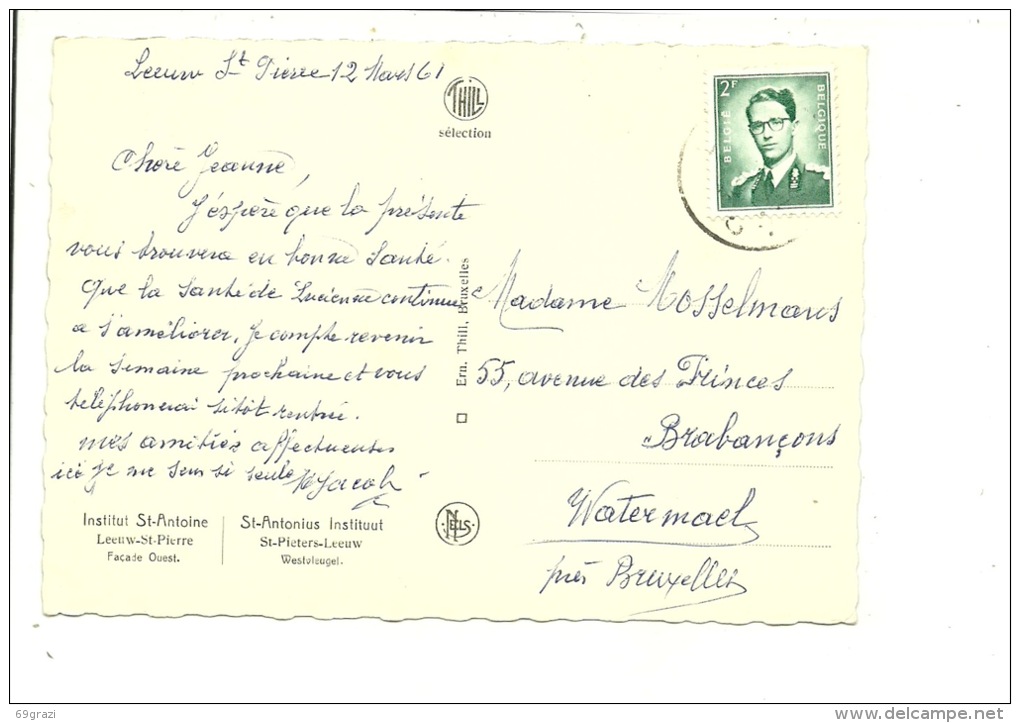 Leeuw St Pierre 12 Mars 61
THILL
sélection
2F
BELGIË
BELGIQUE
Chère Jeanne,
J'espère que la présente
vous trouvera en bonne santé.
Que la santé de Lucienne continue
a s'améliorer, je compte revenir
la semaine prochaine et vous
téléphonerai sitôt rentrée.
mes amitiés affectueuses
ici je me sens si seule
Jacob
Ern. Thill, Bruxelles
Madame Mosselmans
55, avenue des Princes
Brabançons
Watermael
près Bruxelles
Institut St-Antoine
Leeuw-St-Pierre
Façade Ouest.
St-Antonius Instituut
St-Pieters-Leeuw
Westvleugel.
NELS
69grazi
www.delcampe.net